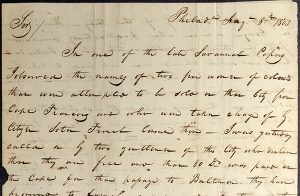 Philad.
Sir/
In one of the late Savannah Papers
I observed the names of two free women of colour
that were attempted to be sold in that City from
Cape Francois and who were taken charge of by
Citizen Sotin French Consul there I was yesterday
called on by two gentlemen of this city who inform
that they are free and that 50 Ds was paid in
the Cape for their passage to Baltimore they have